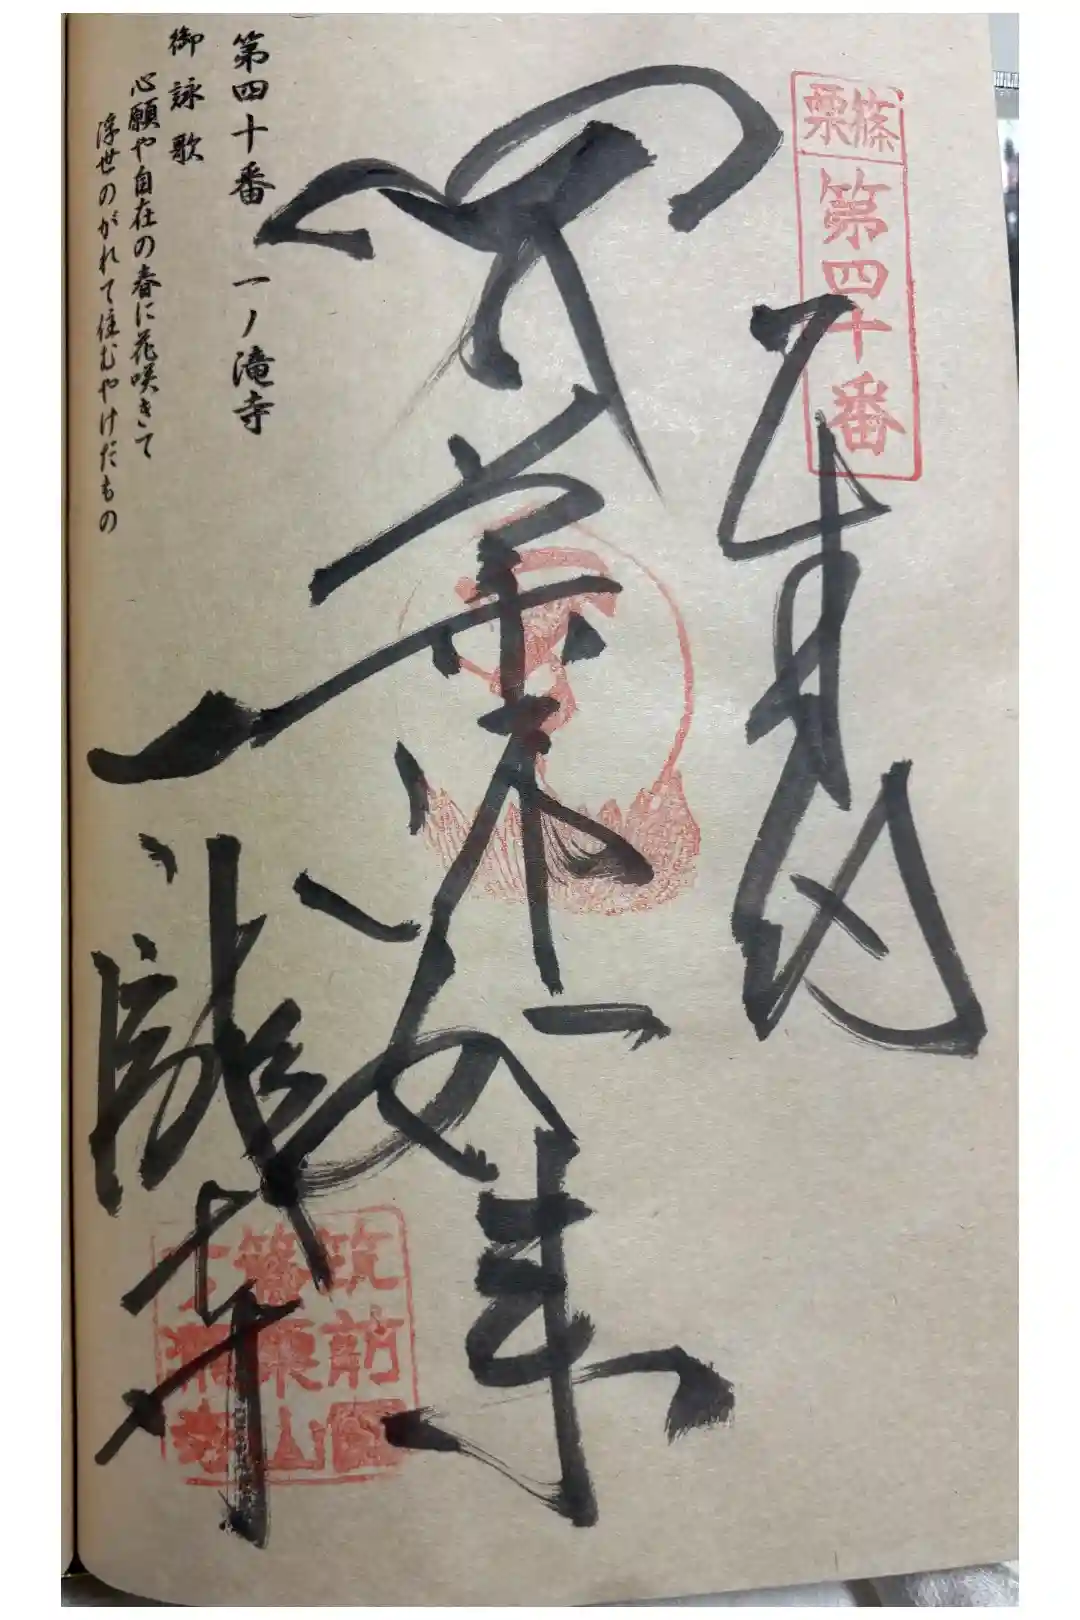 篠栗
第四十番
奉拝
薬師如来
一ノ滝寺
筑前国
篠栗山
一ノ滝寺
第四十番 一ノ滝寺
御詠歌
心願や自在の春に花咲きて
浮世のがれて住むやけだもの